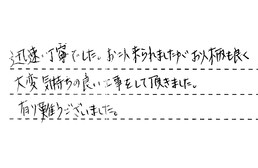 迅速、丁寧でした。お二人来られましたがお人柄も良く
大変気持ちの良い工事をして頂きました。
有り難うございました。